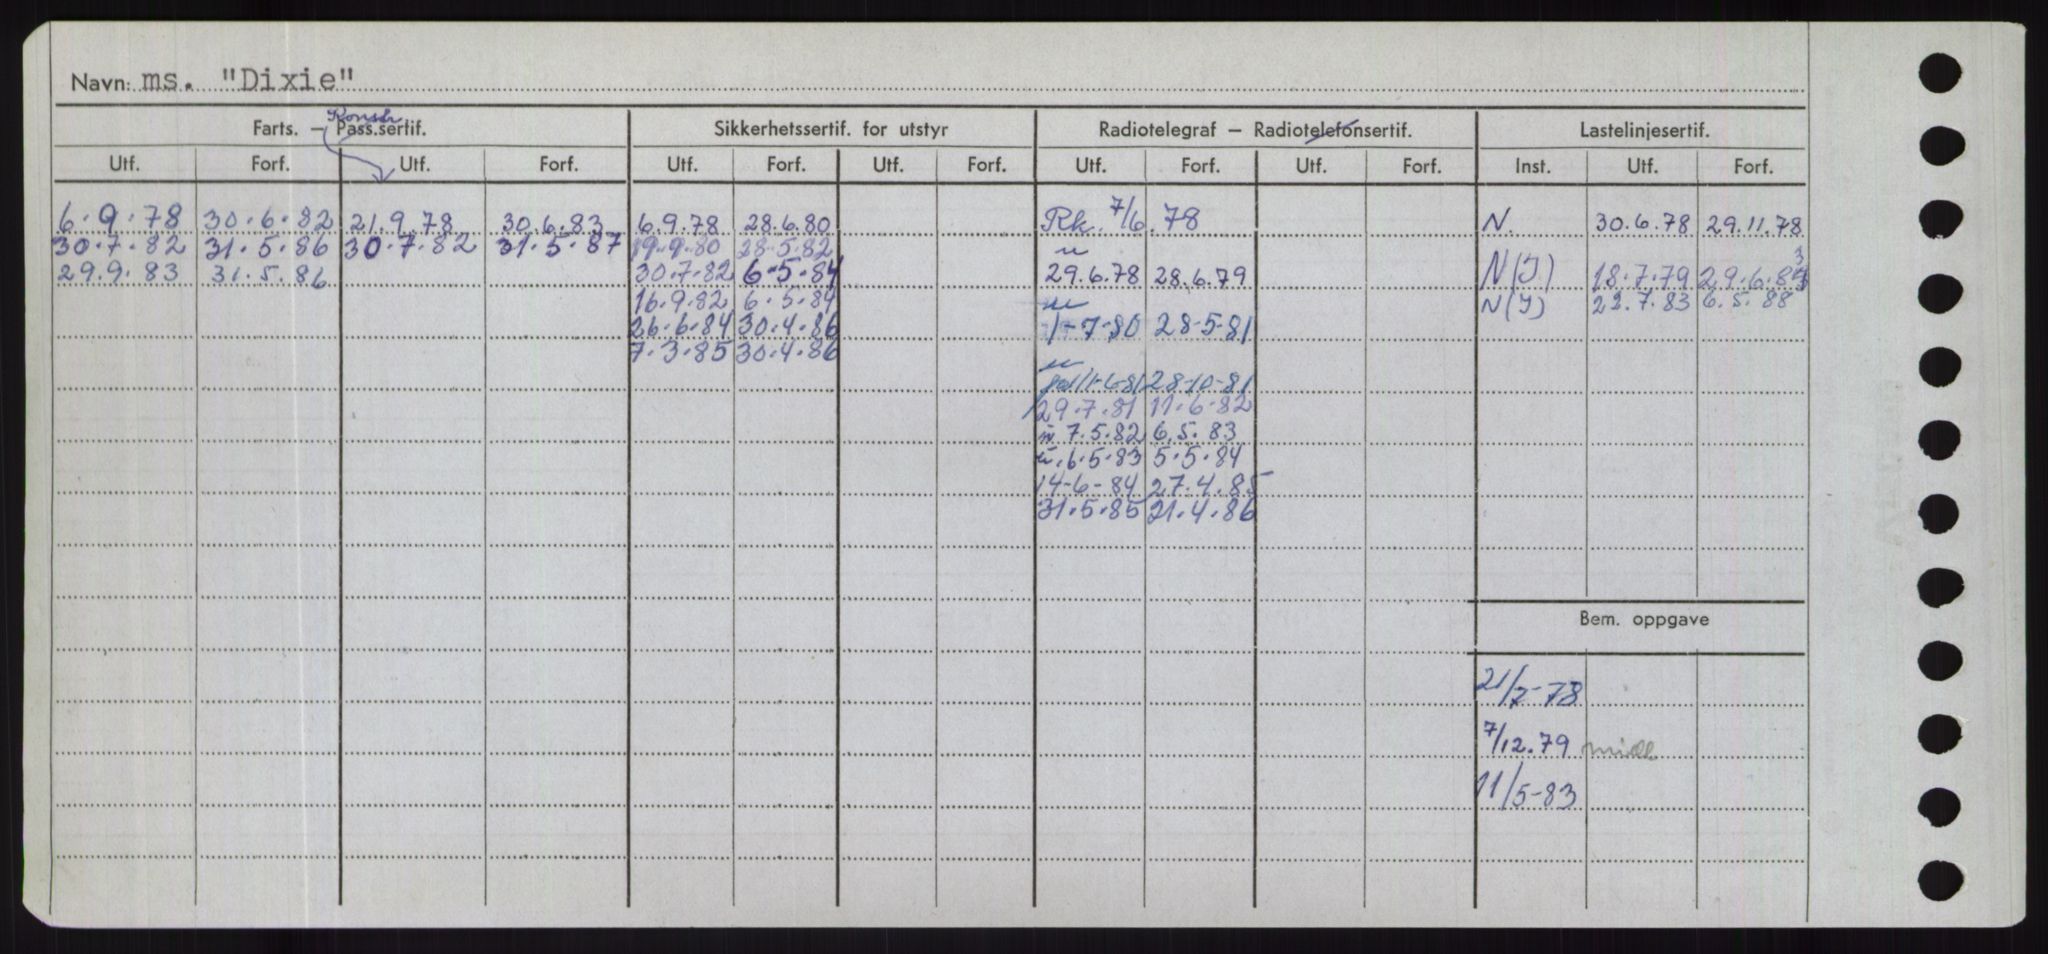 Navn: ms. "Dixie"
Konstr.
Farts. – Pass.sertif. Sikkerhetssertif. for utstyr Radiotelegraf – Radiotelefonsertif. Lastelinjesertif.
Utf. Forf. Utf. Forf. Utf. Forf. Utf. Forf. Utf. Forf. Utf. Forf. Inst. Utf. Forf.
6.9.78 30.6.82 21.9.78 30.6.83 6.9.78 28.6.80 Rk. 7/6.78 N. 30.6.78 29.11.78
30.7.82 31.5.86 30.7.82 31.5.87 19.9.80 28.5.82 "
29.9.83 31.5.86 30.7.82 6.5.84 29.6.78 28.6.79 N(I) 18.7.79 29.6.83
16.9.82 6.5.84 " N(I) 22.7.83 6.5.88
26.6.84 30.4.86 1-7-80 28-5-81
7.3.85 30.4.86 "
11-6-81 28-10-81
29.7.81 11.6-82
" 7.5.82 6.5.83
". 6.5.83 5.5.84
14-6-84 27.4.85
31.5.85 21.4.86
Bem. oppgave
21/7-78
7/12.79 midl
11/5-83